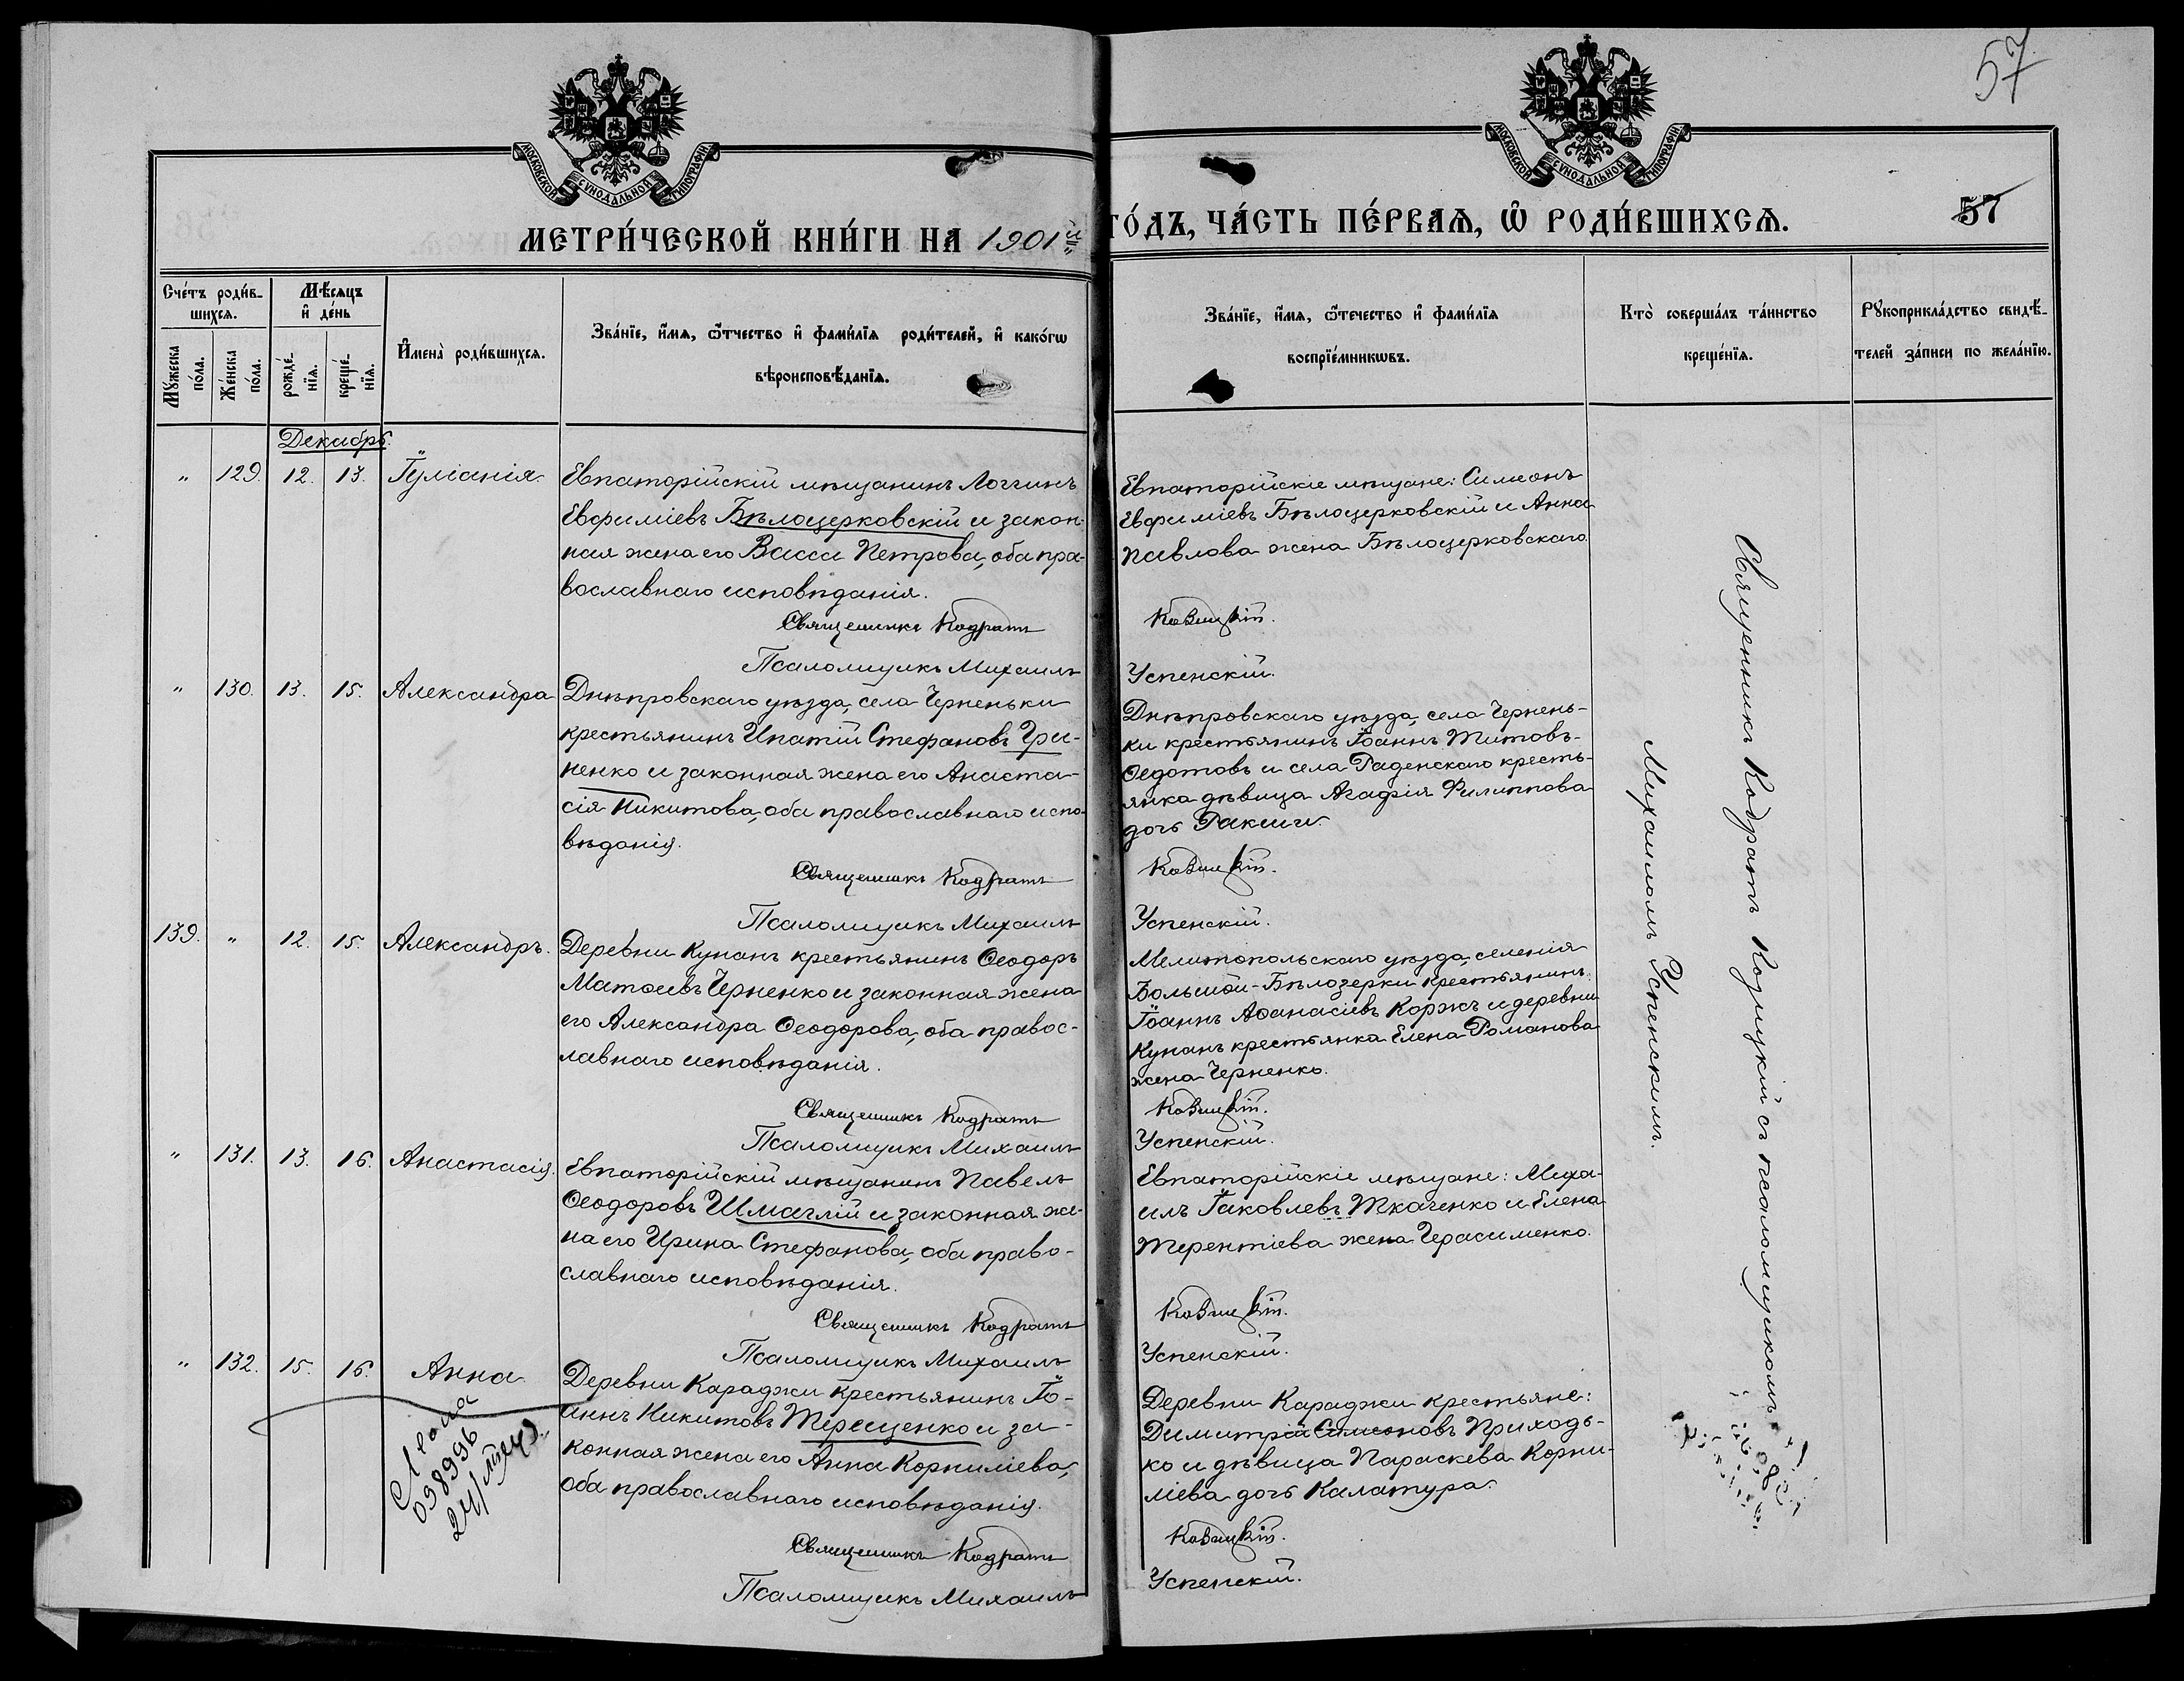 57
МОСКОВСКОЙ СѴНОДАЛЬНОЙ ТИПОГРАФІИ
МОСКОВСКОЙ СѴНОДАЛЬНОЙ ТИПОГРАФІИ
МЕТРИ́ЧЕСКОЙ КНИ́ГИ НА 1901 й
ГО́ДЪ, ЧА́СТЬ ПЕ́РВАѦ, Ѡ҆ РОДИ́ВШИХСѦ.
57
Сче́тъ роди́в-
шихсѧ.
Мꙋ́жеска по́ла.
Же́нска по́ла.
Мѣ́сѧцъ
и҆ де́нь
рожде́-
нїѧ.
креще́-
нїѧ.
И҆мена̀ роди́вшихсѧ.
Зва́нїе, и҆́мѧ, ѻ҆́тчество и҆ фами́лїѧ роди́телей, и҆ како́гѡ
вѣроисповѣ́данїѧ.
Зва́нїе, и҆́мѧ, ѻ҆́течество и҆ фами́лїѧ
воспрїе́мникѡвъ.
Кто̀ соверша́лъ та́инство
креще́нїѧ.
Рꙋкоприкла́дство свидѣ́-
телей за́писи по жела́нїю.
Декабрь.
" 129. 12. 13. Іуліанія
Евпаторійскій мѣщанинъ Логгинъ
Евфиміевъ Бѣлоцерковскій и закон-
ная жена его Васса Петрова, оба пра-
вославнаго исповѣданія.
Священникъ Кодратъ
Псаломщикъ Михаилъ
Евпаторійскіе мѣщане: Симеонъ
Евфиміевъ Бѣлоцерковскій и Анна
Павлова жена Бѣлоцерковскаго.
Козицкій.
Успенскій.
" 130. 13. 15. Александра
Днѣпровскаго уѣзда, села Черненьки
крестьянинъ Ипатій Стефановъ Гри-
ненко и законная жена его Анаста-
сія Никитова, оба православнаго испо-
вѣданія.
Священникъ Кодратъ
Псаломщикъ Михаилъ
Днѣпровскаго уѣзда, села Чернень-
ки крестьянинъ Іоаннъ Титовъ
Ѳедотовъ и села Раденскаго кресть-
янка дѣвица Агафія Филиппова
дочь
Козицкій.
Успенскій.
139. " 12. 15. Александръ.
Деревни Кунанъ крестьянинъ Ѳеодоръ
Матѳеевъ Черненко и законная жена
его Александра Ѳеодорова, оба правос-
лавнаго исповѣданія.
Священникъ Кодратъ
Псаломщикъ Михаилъ
Мелитопольскаго уѣзда, селенія
Большой-Бѣлозерки крестьянинъ
Іоаннъ Аѳанасіевъ Коржъ и деревни
Кунанъ крестьянка Елена Романова
жена Черненко.
Козицкій.
Успенскій.
" 131. 13. 16. Анастасія.
Евпаторійскій мѣщанинъ Павелъ
Ѳеодоровъ Шмаглій и законная же-
на его Ирина Стефанова, оба право-
славнаго исповѣданія.
Священникъ Кодратъ
Псаломщикъ Михаилъ
Евпаторійскіе мѣщане: Миха-
илъ Іаковлевъ Ткаченко и Елена
Терентіева жена Герасименко.
Козицкій.
Успенскій.
" 132. 15. 16. Анна
Деревни Караджи крестьянинъ Іо-
аннъ Никитовъ Терещенко и за-
конная жена его Анна Корниліева,
оба православнаго исповѣданія.
Священникъ Кодратъ
Псаломщикъ Михаилъ
Деревни Караджи крестьяне:
Димитрій Симеоновъ Приходь-
ко и дѣвица Параскева Корни-
ліева дочь Калатура.
Козицкій.
Успенскій.
038996
Священникъ Кодратъ Козицкій съ псаломщикомъ
Михаиломъ Успенскимъ.